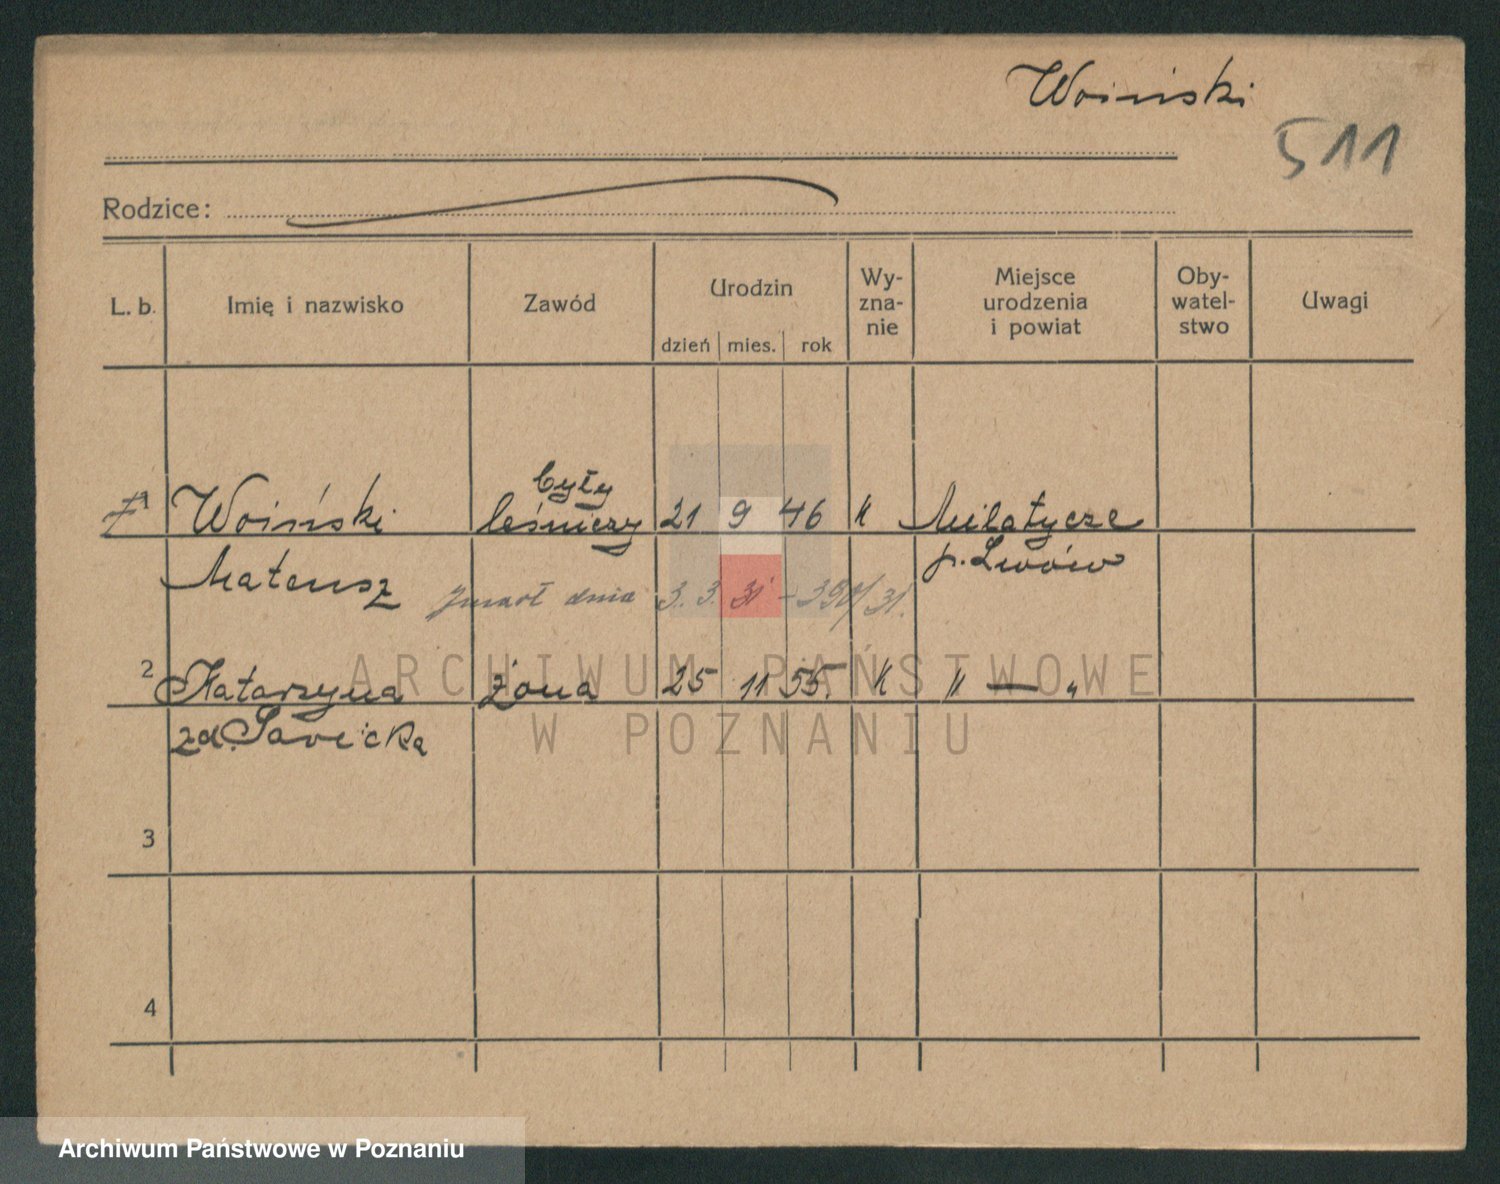 Woiński
511
Rodzice:
L. b. Imię i nazwisko Zawód Urodzin dzień mies. rok Wy-zna-nie Miejsce urodzenia i powiat Oby-watel-stwo Uwagi
były
1 Woiński leśniczy 21 9 46 K Milatycze
Mateusz p. Lwów
zmarł dnia 3. 3. 31
2 Katarzyna żona 25 11 55. K " — "
zd. Sawicka
3
4
ARCHIWUM PAŃSTWOWE
W POZNANIU
Archiwum Państwowe w Poznaniu